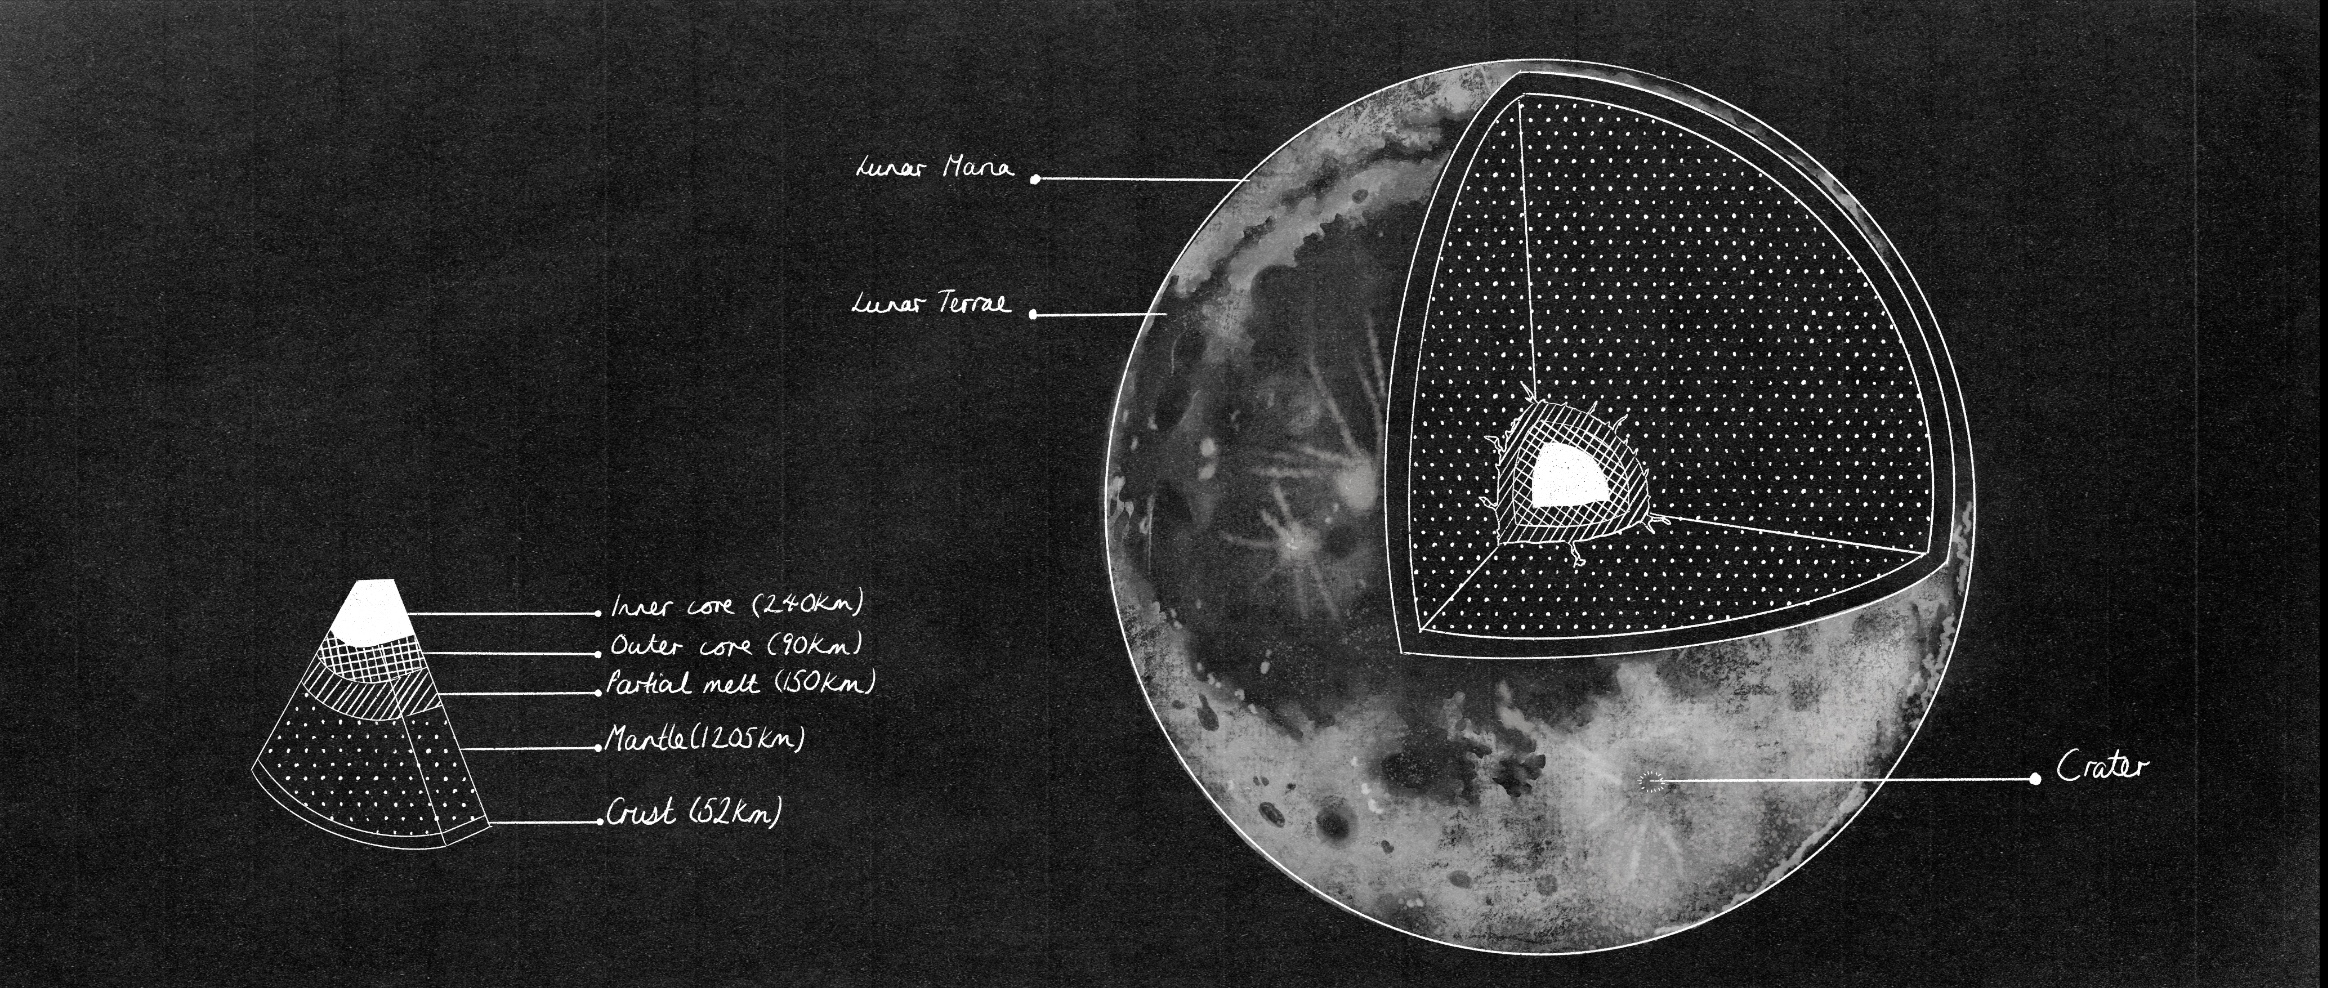 Lunar Maria
Lunar Terrae
Inner core (240km)
Outer core (90km)
Partial melt (150km)
Mantle (1205km)
Crust (52km)
Crater